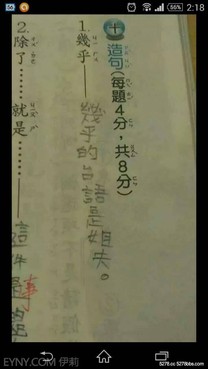 56% 2:18
十 造句(每題4分,共8分)
1.幾乎——幾乎的台語是姐夫。
2.除了……就是——這件事
EYNY.COM 伊莉
5278.cc 5278bbs.com